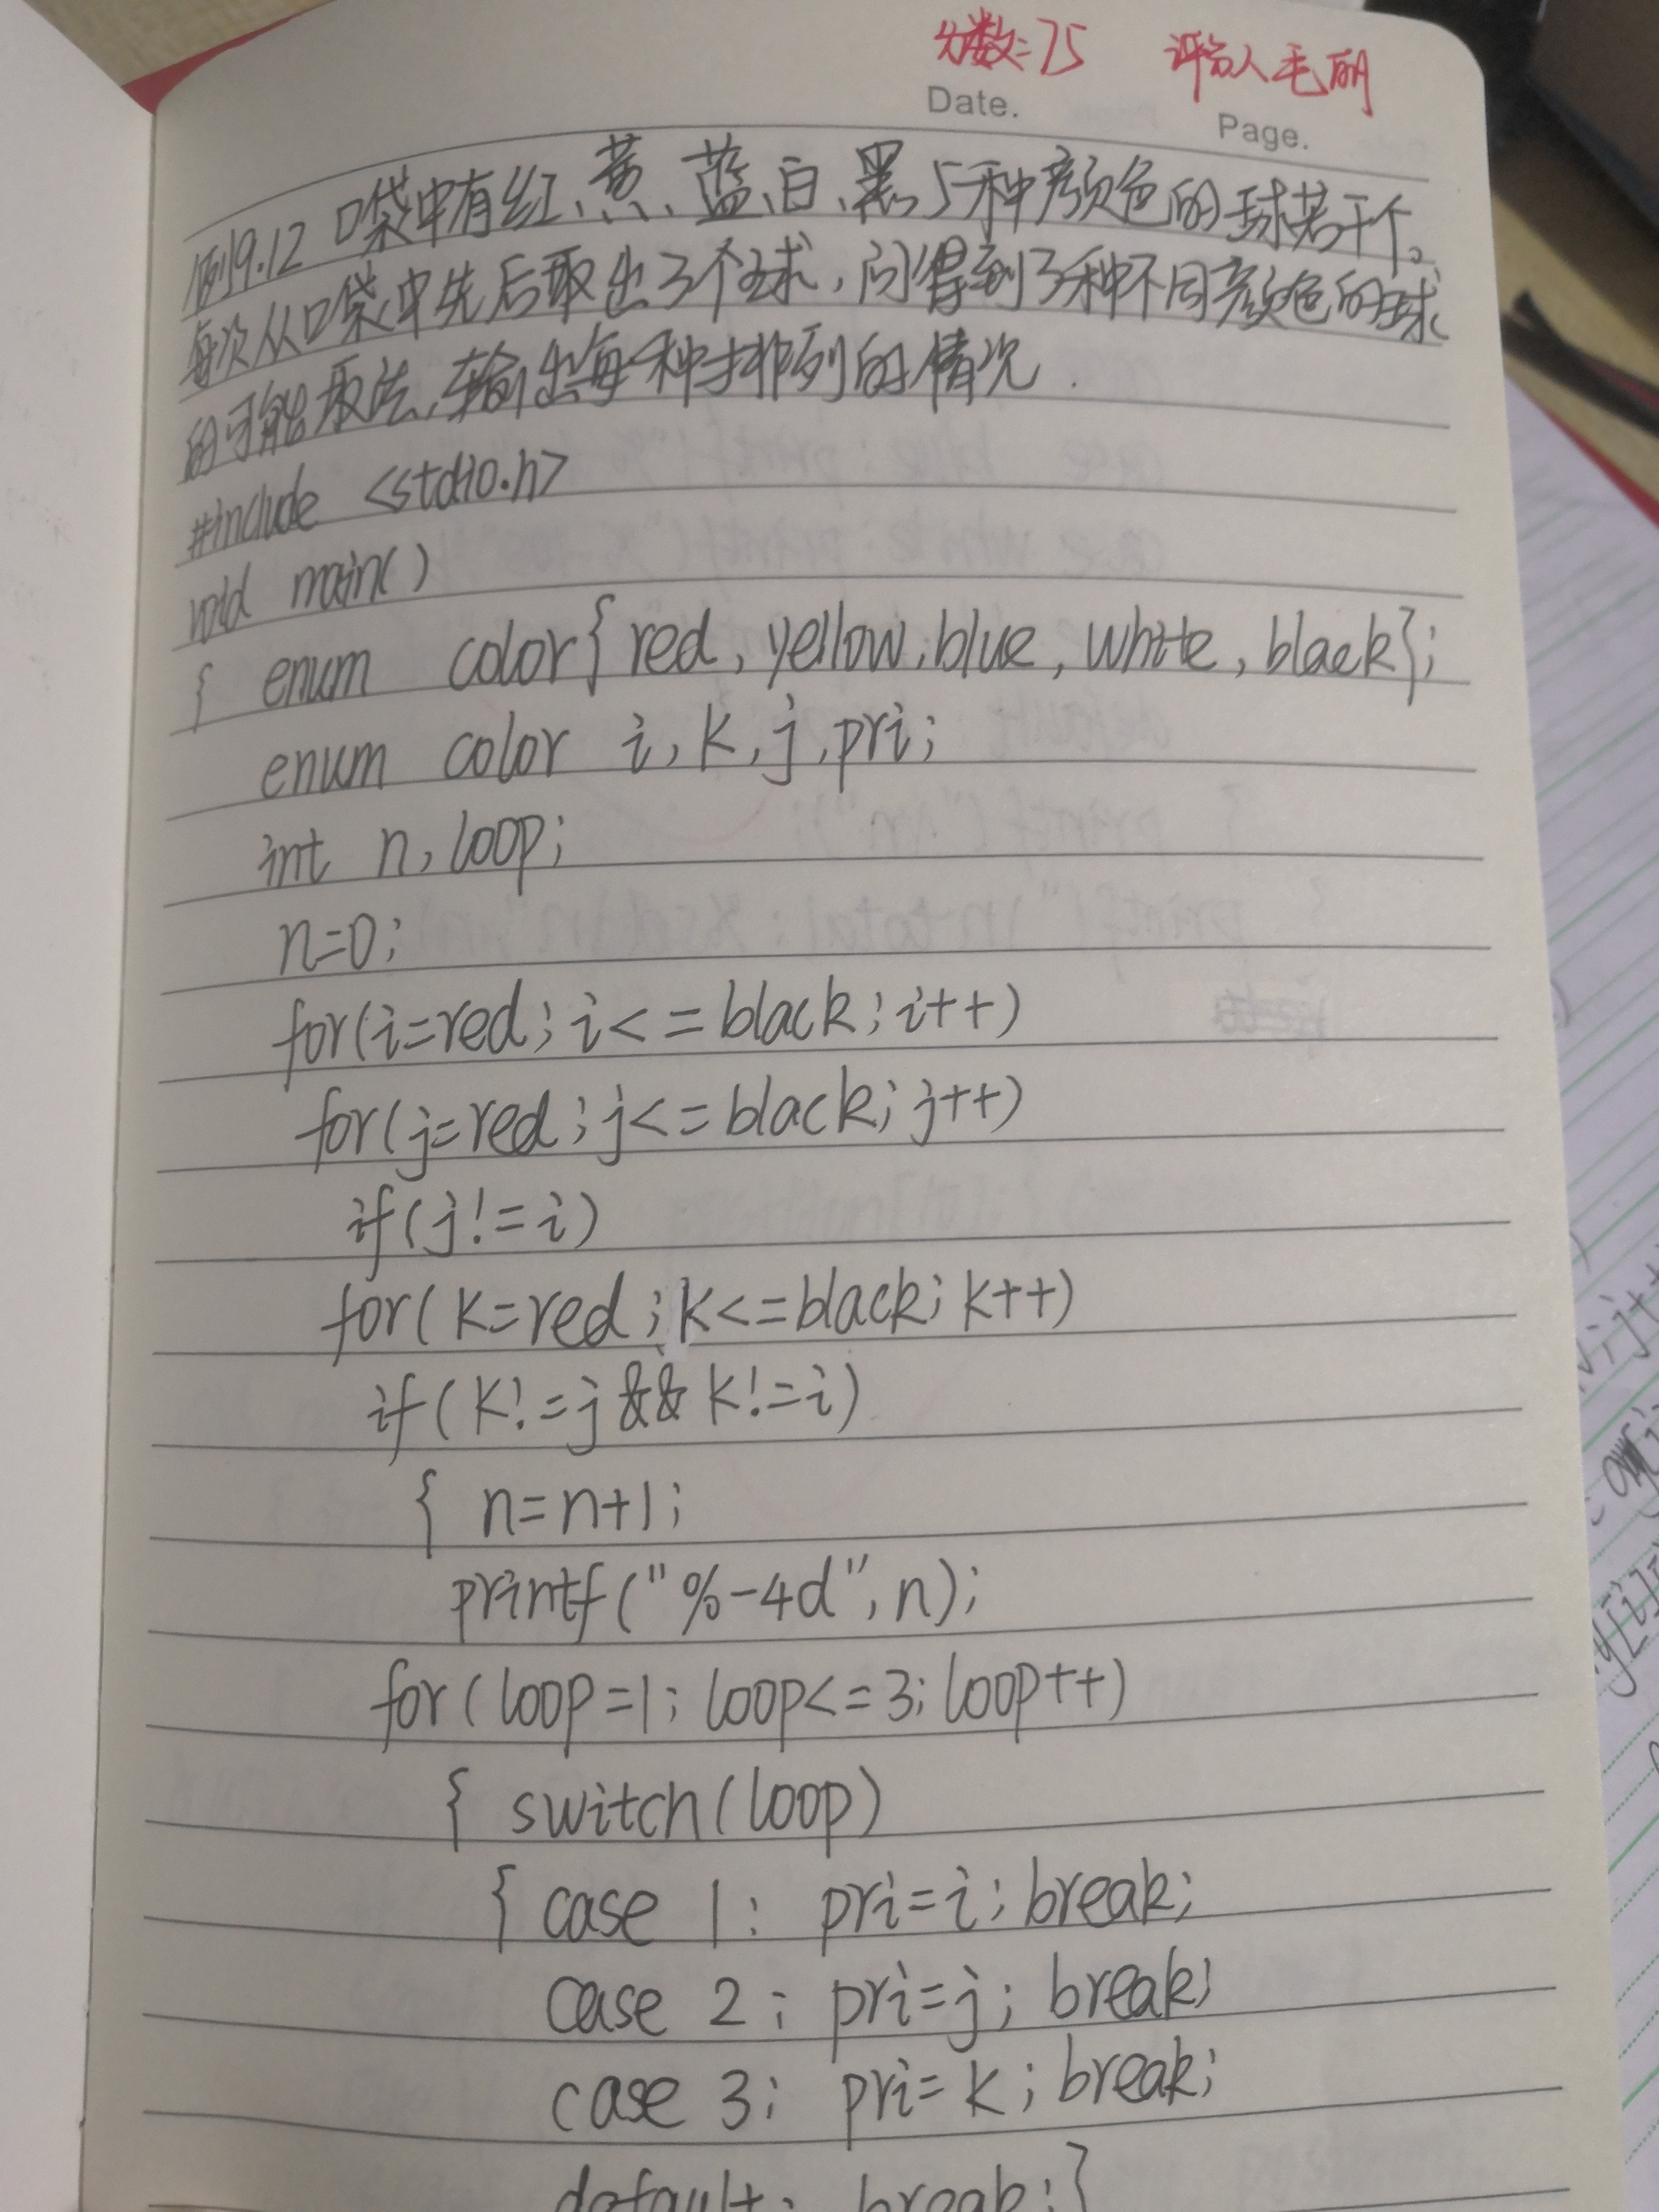 分数:75 评分人毛丽
Date.
Page.
例9.12 口袋中有红、黄、蓝、白、黑5种颜色的球若干个。
每次从口袋中先后取出3个球,问得到3种不同颜色的球
的可能取法,输出每一种排列的情况.
#include <stdio.h>
void main()
{ enum color{red,yellow,blue,white,black};
enum color i,k,j,pri;
int n,loop;
n=0;
for(i=red;i<=black;i++)
for(j=red;j<=black;j++)
if(j!=i)
for(k=red;k<=black;k++)
if(k!=j&&k!=i)
{ n=n+1;
printf("%-4d",n);
for(loop=1;loop<=3;loop++)
{ switch(loop)
{ case 1: pri=i;break;
case 2: pri=j;break;
case 3: pri=k;break;
default: break;}